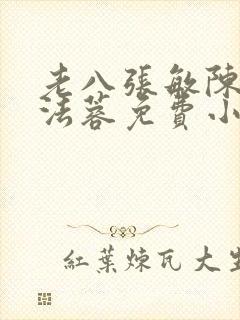 老八張敏陳
法蓉免費小
紅葉煉瓦大